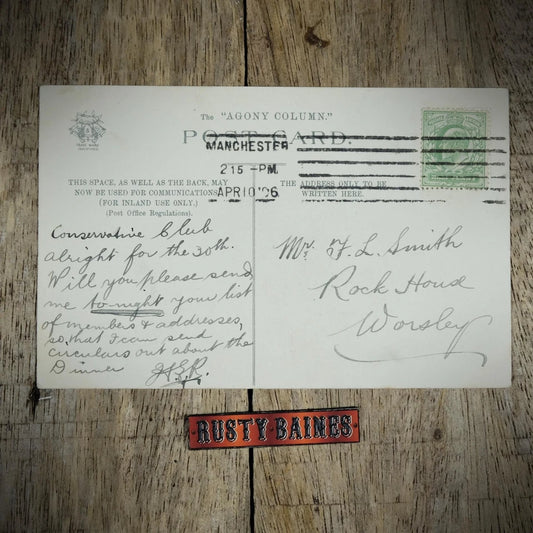 The "AGONY COLUMN."
POST CARD.
MANCHESTER
2 15 - PM
APR 10 '26
THIS SPACE, AS WELL AS THE BACK, MAY
NOW BE USED FOR COMMUNICATIONS
(FOR INLAND USE ONLY.)
(Post Office Regulations).
THE ADDRESS ONLY TO BE
WRITTEN HERE.
Conservative Club
alright for the 30th.
Will you please send
me to-night your list
of members & addresses,
so that I can send
circulars out about the
Dinner
Mr. F. L. Smith
Rock House
Worsley
RUSTY BAINES